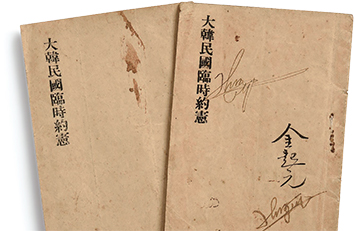 大韓民國臨時約憲
大韓民國臨時約憲
金起元